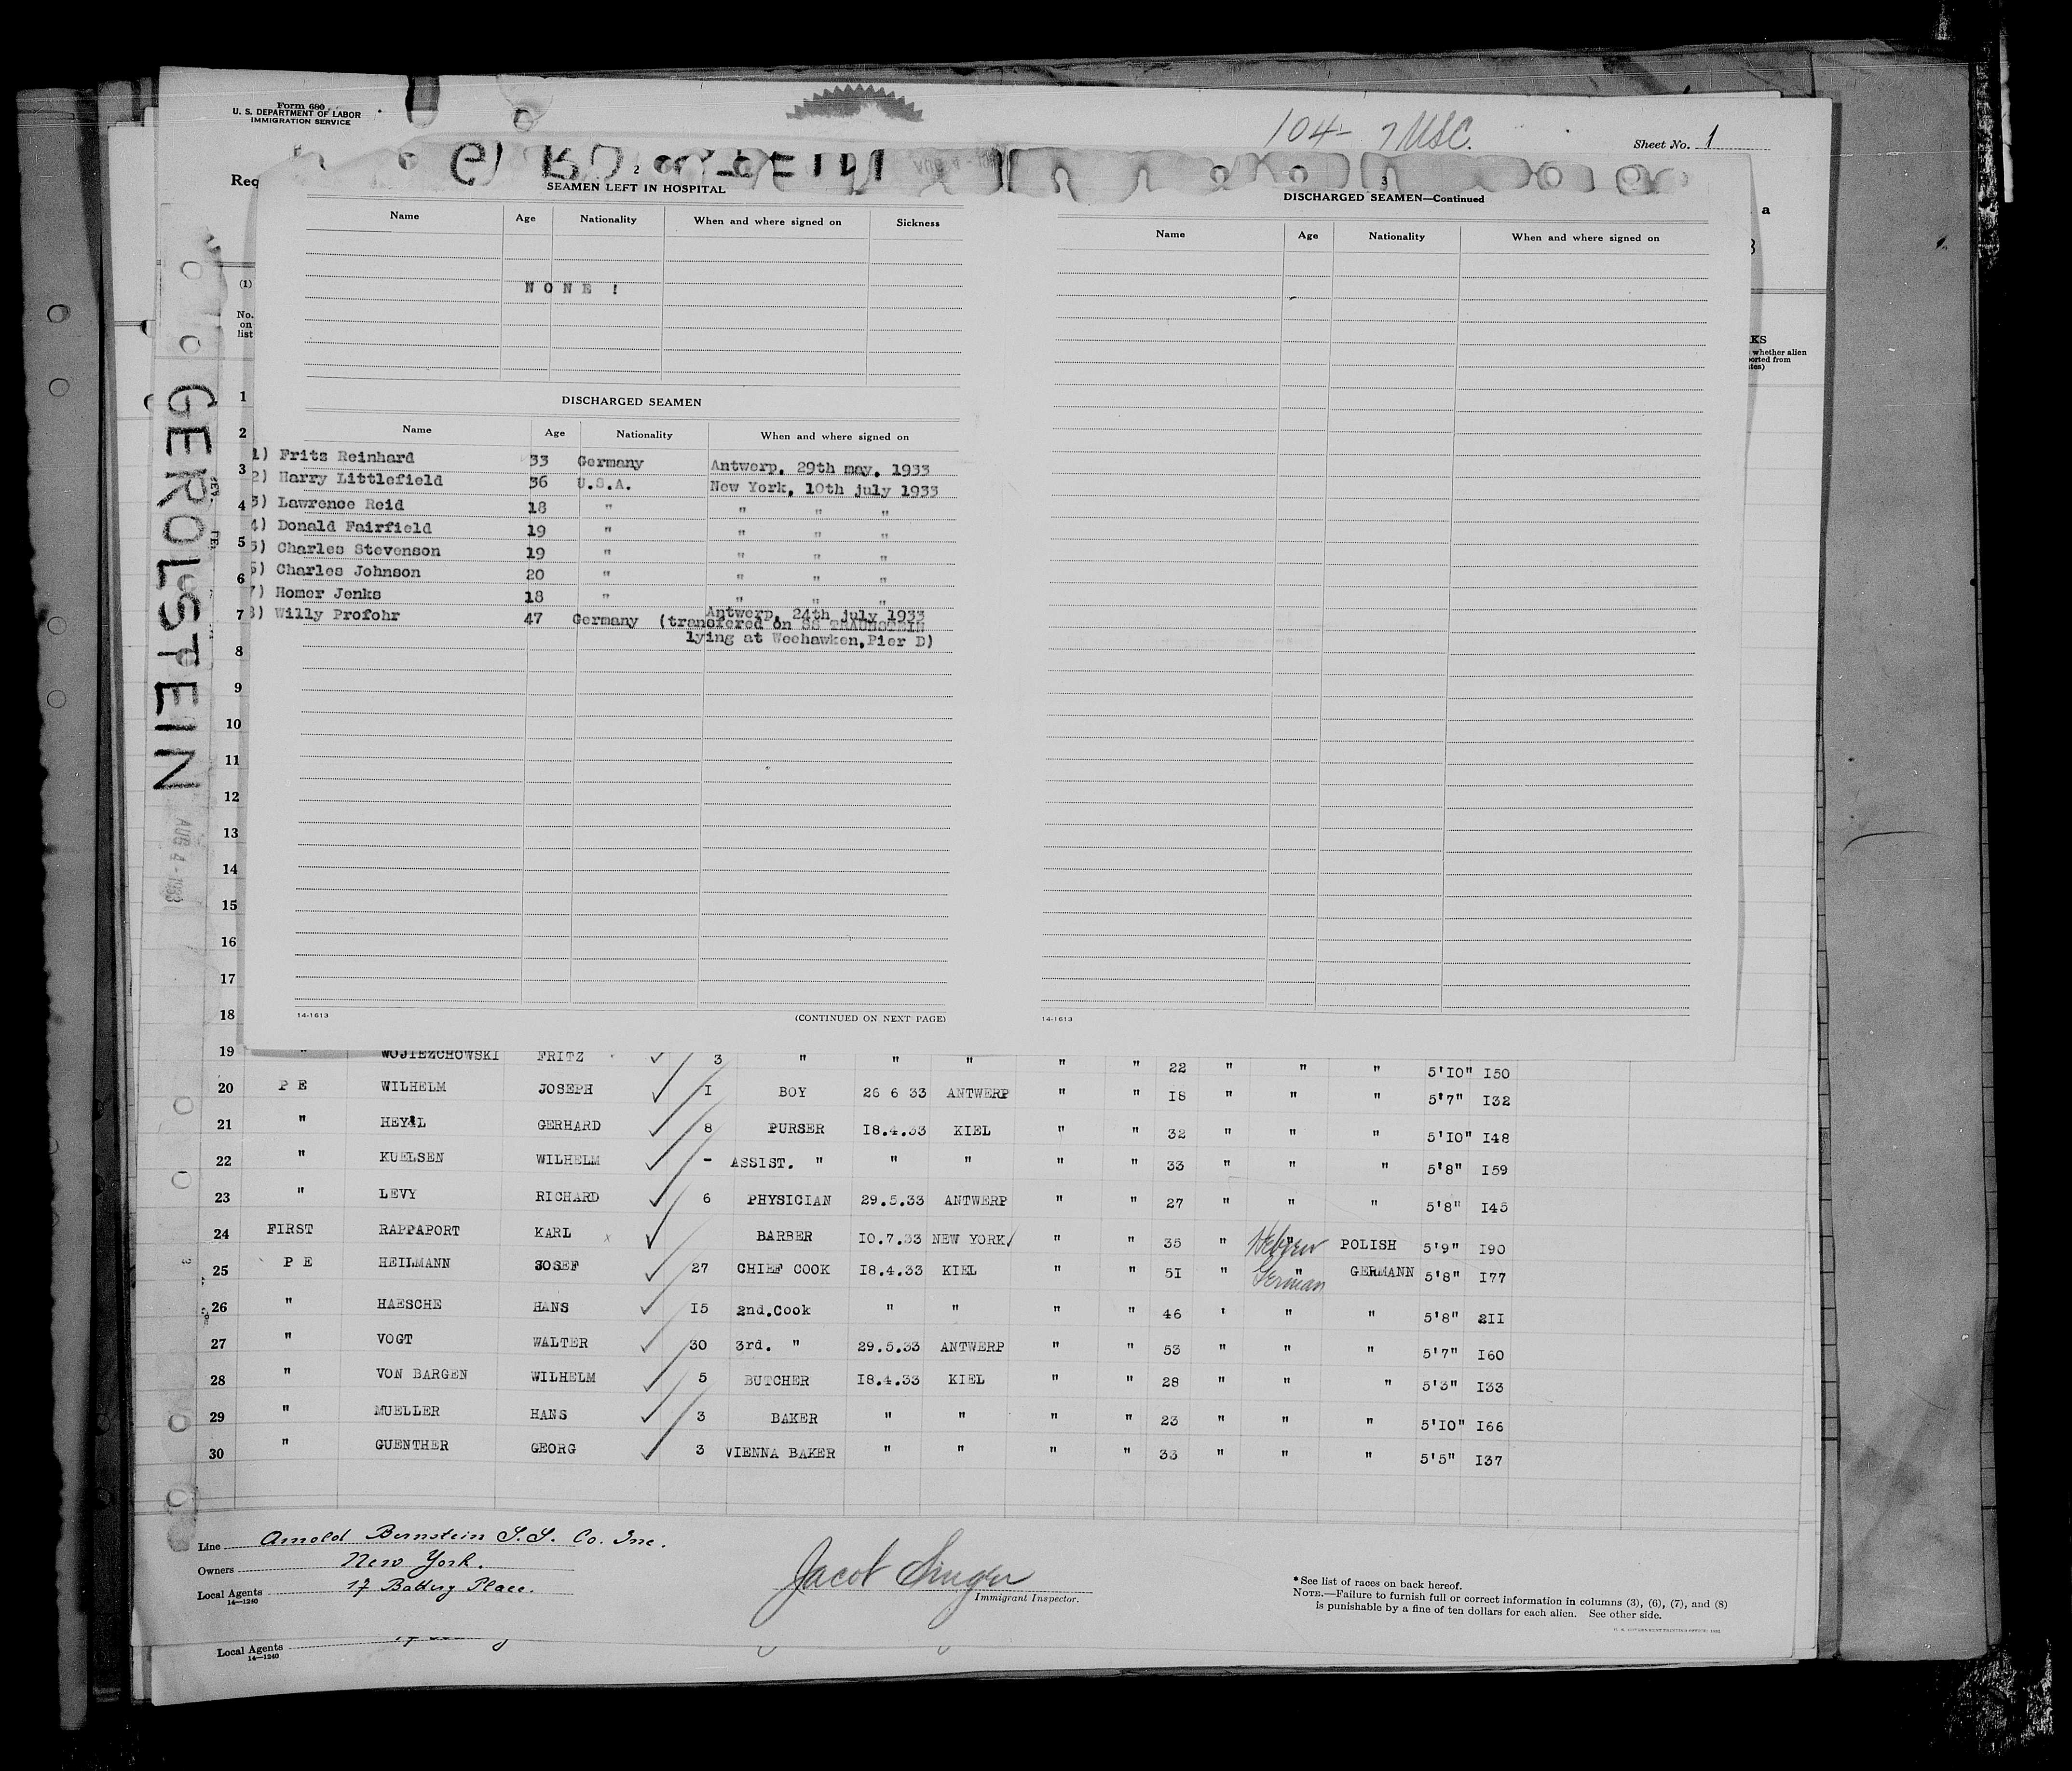 Form 680
U. S. DEPARTMENT OF LABOR
IMMIGRATION SERVICE
104- 7 USC.
Sheet No. 1
Req
a
GEROLSTEIN
AUG 4 - 1933
(1)
No.
on
list
KS
whether alien
ported from
ates)
2
SEAMEN LEFT IN HOSPITAL
Name Age Nationality When and where signed on Sickness
NONE !
DISCHARGED SEAMEN
Name Age Nationality When and where signed on
1) Frits Reinhard 33 Germany Antwerp, 29th may. 1933
2) Harry Littlefield 36 U.S.A. New York, 10th july 1933
3) Lawrence Reid 18 " " " "
4) Donald Fairfield 19 " " " "
5) Charles Stevenson 19 " " " "
6) Charles Johnson 20 " " " "
7) Homer Jenks 18 " " " "
8) Willy Profohr 47 Germany Antwerp, 24th july 1933
(transfered on SS TRAUNSTEIN
lying at Weehawken,Pier D)
14-1613 (CONTINUED ON NEXT PAGE)
3
DISCHARGED SEAMEN—Continued
Name Age Nationality When and where signed on
14-1613
1
2
3
4
5
6
7
8
9
10
11
12
13
14
15
16
17
18
19 " WOJIEZCHOWSKI FRITZ 3 " " " " " 22 " " " 5'IO" I50
20 P E WILHELM JOSEPH I BOY 26 6 33 ANTWERP " " I8 " " " 5'7" I32
21 " HEYIL GERHARD 8 PURSER I8.4.33 KIEL " " 32 " " " 5'IO" I48
22 " KUELSEN WILHELM - ASSIST. " " " " " 33 " " " 5'8" I59
23 " LEVY RICHARD 6 PHYSICIAN 29.5.33 ANTWERP " " 27 " " " 5'8" I45
24 FIRST RAPPAPORT KARL x BARBER IO.7.33 NEW YORK " " 35 " Hebrew POLISH 5'9" I90
25 P E HEILMANN JOSEF 27 CHIEF COOK I8.4.33 KIEL " " 5I " German " GERMANN 5'8" I77
26 " HAESCHE HANS I5 2nd.Cook " " " " 46 ' " " 5'8" 2II
27 " VOGT WALTER 30 3rd. " 29.5.33 ANTWERP " " 53 " " " 5'7" I60
28 " VON BARGEN WILHELM 5 BUTCHER I8.4.33 KIEL " " 28 " " " 5'3" I33
29 " MUELLER HANS 3 BAKER " " " " 23 " " " 5'IO" I66
30 " GUENTHER GEORG 3 VIENNA BAKER " " " " 33 " " " 5'5" I37
Line Arnold Bernstein S.S. Co. Inc.
Owners New York.
Local Agents 17 Battery Place.
14—1240
Jacob Singer
Immigrant Inspector.
*See list of races on back hereof.
NOTE.—Failure to furnish full or correct information in columns (3), (6), (7), and (8)
is punishable by a fine of ten dollars for each alien. See other side.
Local Agents
14—1240